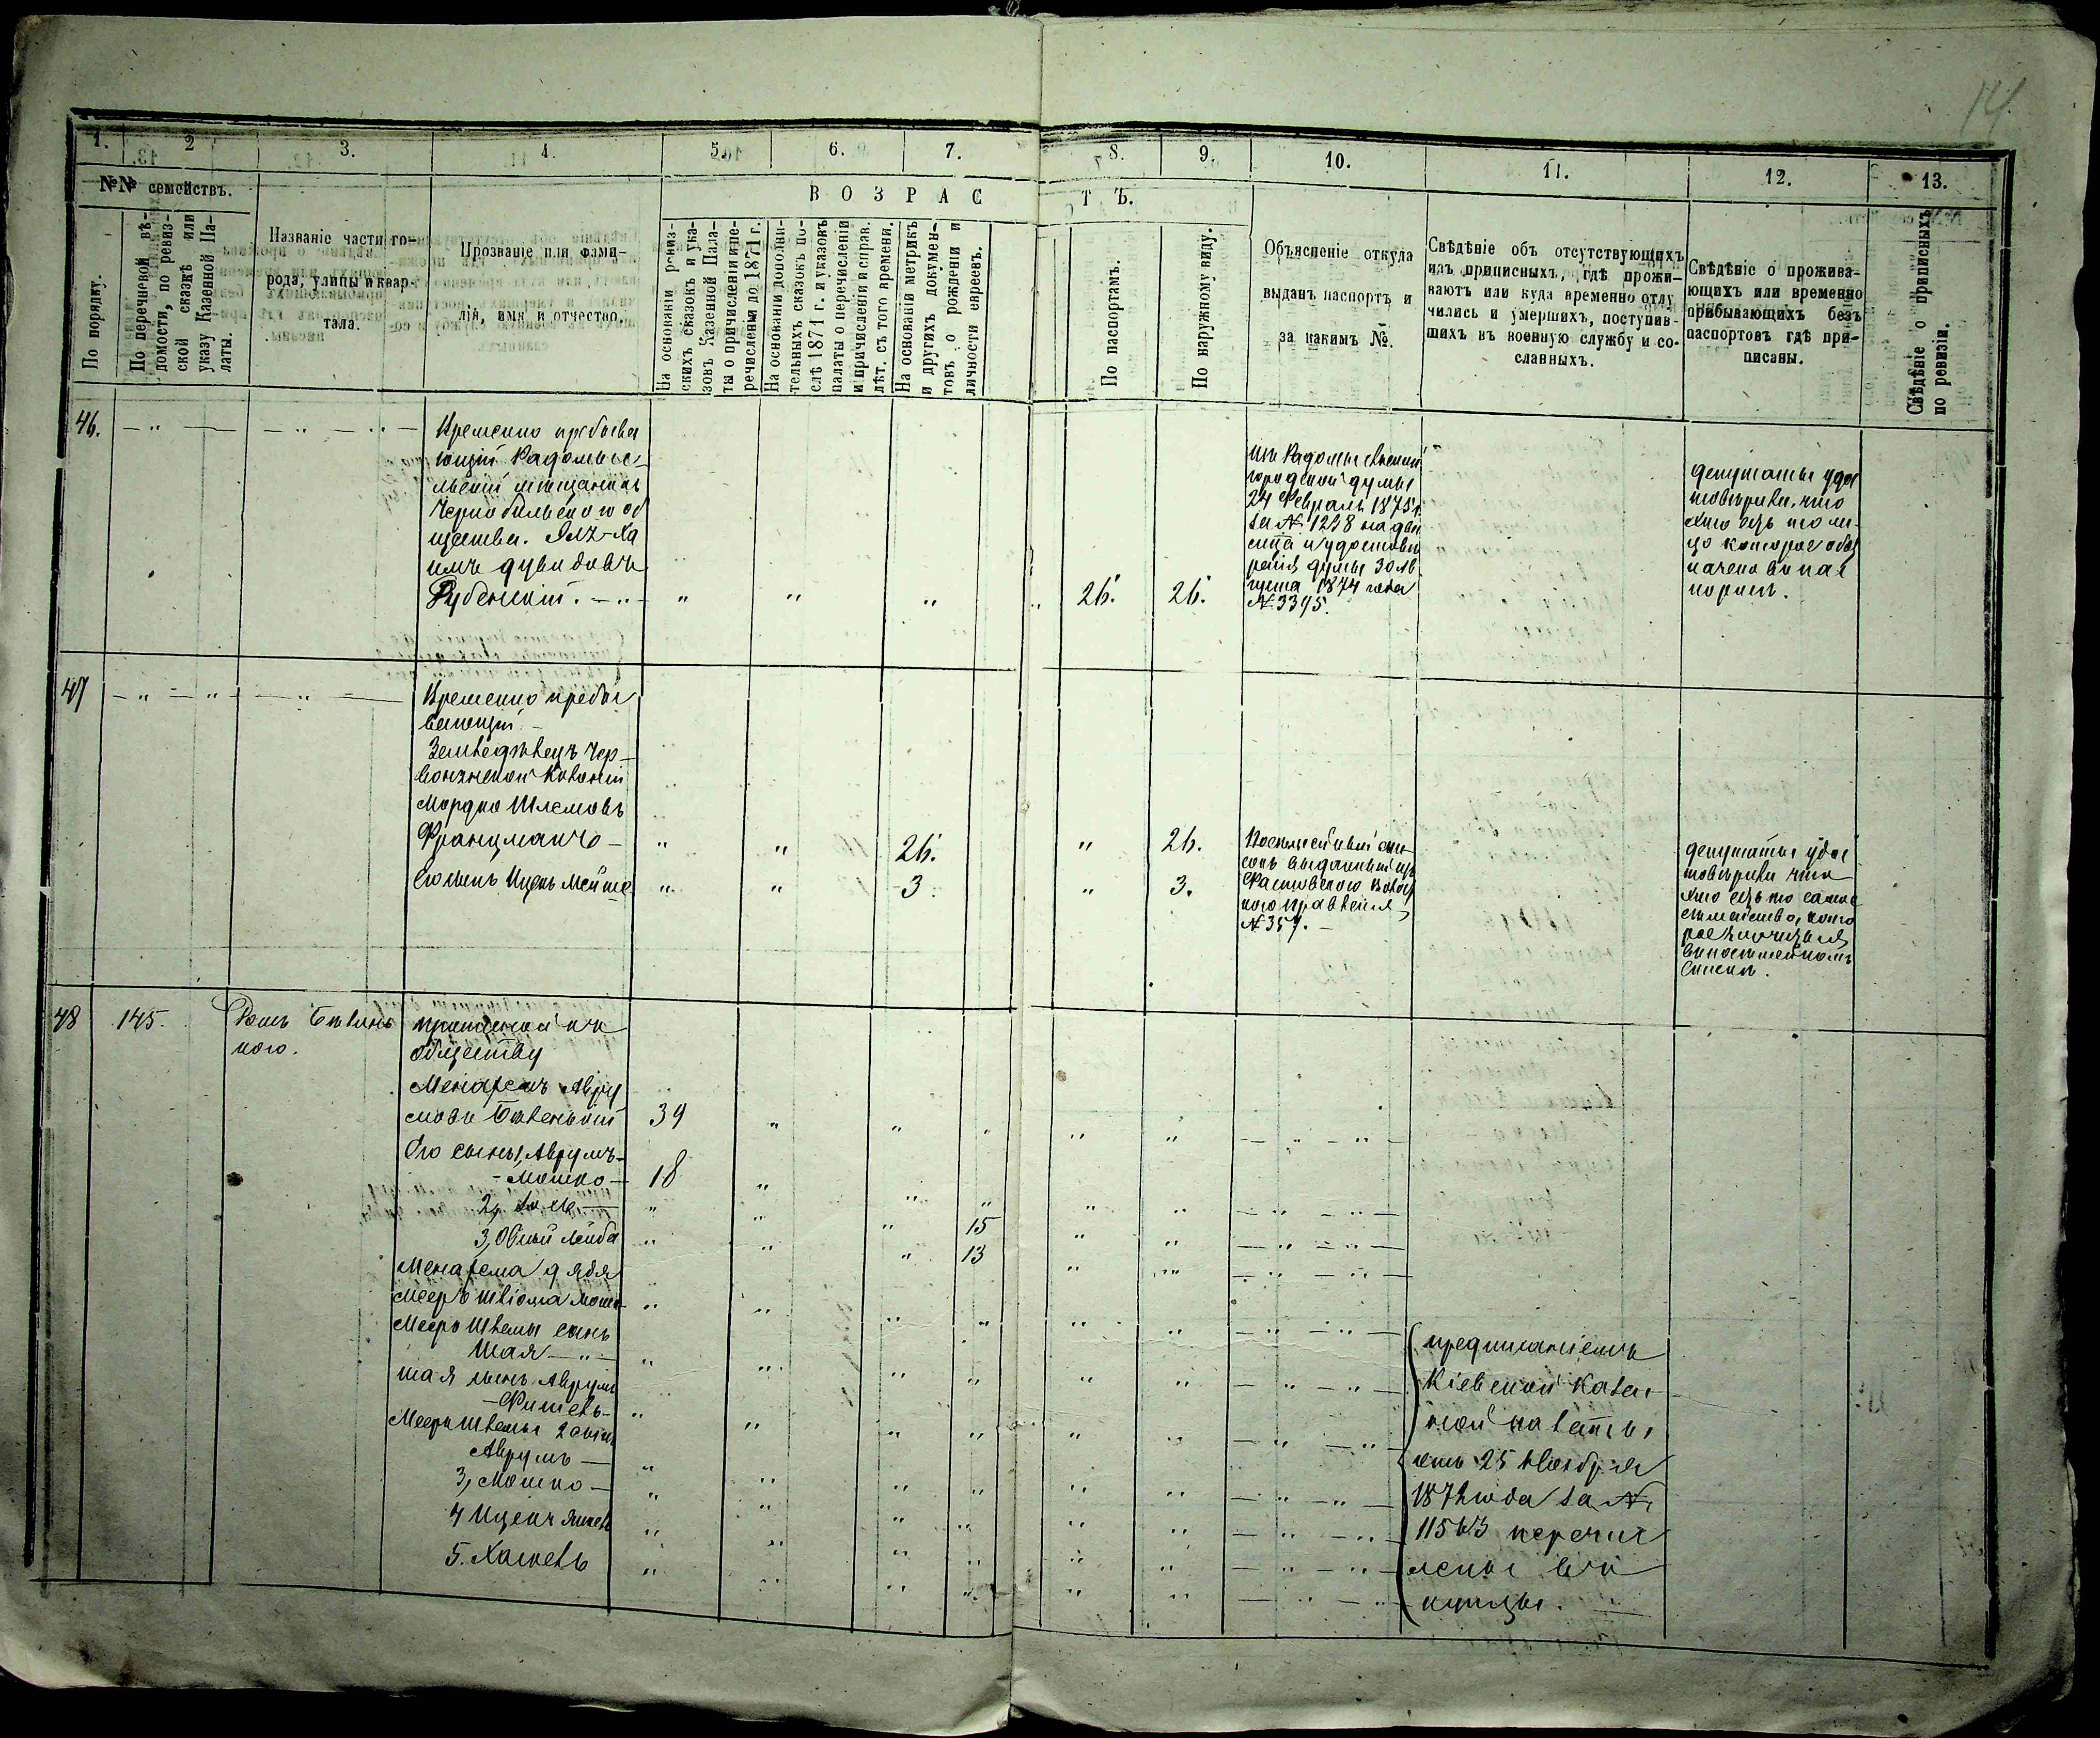 14.
1.
2
3.
4.
5.
6.
7.
8.
9.
10.
11.
12.
13.
№№ семействъ.
По порядку.
По перечневой вѣ-
домости, по ревиз-
ской сказкѣ или
указу Казенной Па-
латы.
Названіе части го-
рода, улицы и квар-
тала.
Прозваніе или фами-
лія, имя и отчество.
ВОЗРАСТЪ.
На основаніи ревиз-
скихъ сказокъ и ука-
зовъ Казенной Пала-
ты о причисленіи и пе-
речисленіи до 1871 г.
На основаніи дополни-
тельныхъ сказокъ по-
слѣ 1871 г. и указовъ
палаты о перечисленіи
и причисленіи и справ.
лѣт. съ того времени.
На основаніи метрикъ
и другихъ докумен-
товъ о рожденіи и
личности евреевъ.
По паспортамъ.
По наружному виду.
Объясненіе откуда
выданъ паспортъ и
за какимъ №.
Свѣдѣніе объ отсутствующихъ
изъ приписныхъ, гдѣ прожи-
ваютъ или куда временно отлу
чились и умершихъ, поступив-
шихъ въ военную службу и со-
сланныхъ.
Свѣдѣніе о прожива-
ющихъ или временно
прибывающихъ безъ
паспортовъ гдѣ при-
писаны.
Свѣдѣніе о приписныхъ
по ревизіи.
46.
Временно пребыва
ющій Радомыс-
льскій мещанинъ
Чернобыльского об
щества.
Рубенскій.
26.
26.
изъ Радомысльской
городской думы
24 Февраля 1875 г.
за № 1238 на два
думы 30 Ав
густа 1874 года
№ 3395.
депутаты удос
товѣрили, что
это есть то ли-
цо которое обоз
начено въ пас
портѣ.
47
Временно пребы
вающій
Земледѣлецъ Чер-
вонянской Колоніи
Мордко Шлемовъ
Французманъ
26.
26.
сынъ Ицко Мейше
3
3.
Посемейный спи-
сокъ выданный изъ
Фастовского Волос
ного правленія
№ 357.
депутаты удос
товѣрили что
это есть то самое
семейство, кото
рое
въ посемейномъ
списке.
48
145.
Домъ Бѣлинь
кого.
приписной къ
обществу
Менахемъ Авру
мовъ Биленькій
39
Его сыны 1, Аврумъ-
- Мошко -
18
15
3, Овший Лейба
13
Менахема дядя
Мееръ Шліома Мошк.
Меера Шлемы сынъ
Шая
Шая сынъ Аврумъ
-Фишель-
Меера Шлемы 2 сынъ
Аврумъ -
3, Мошко -
4 Ицекъ
5. Хаскель
предписаніемъ
Кіевской Казен
ной палаты
отъ 25 Ноября
1872 года за №
11563 перечис
лены въ
купцы.